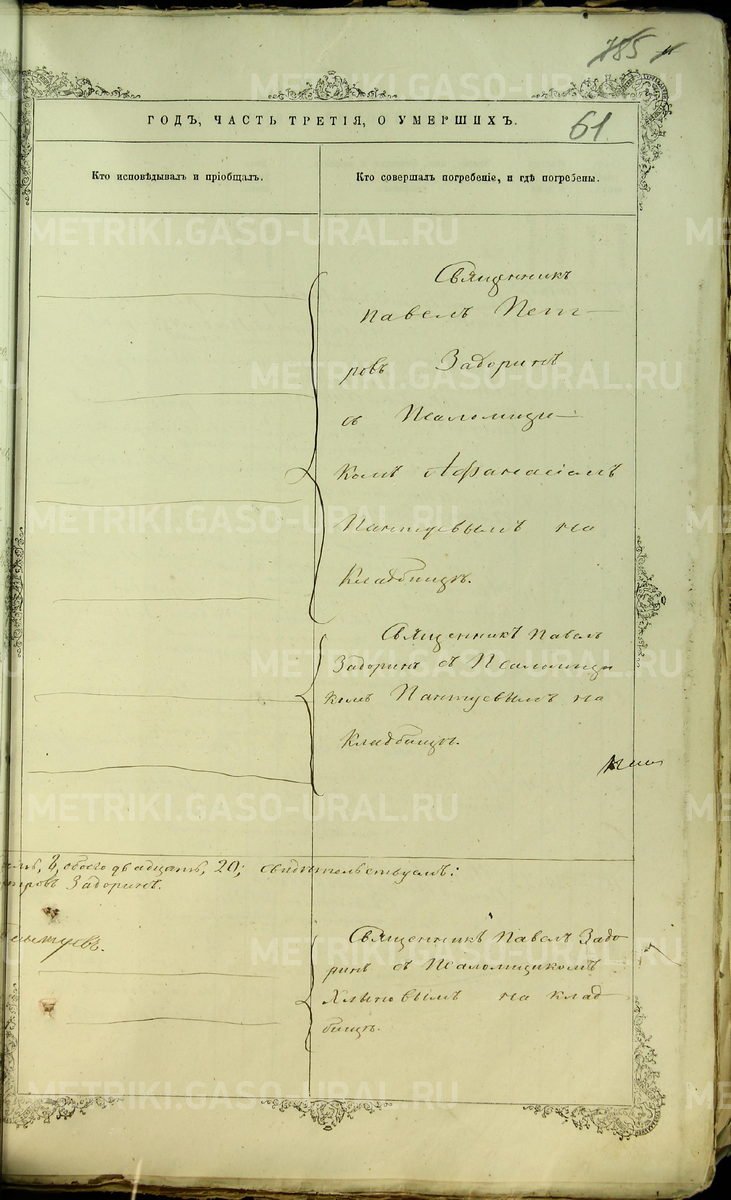 185
61
ГОДЪ, ЧАСТЬ ТРЕТІЯ, О УМЕРШИХЪ.
Кто исповѣдывалъ и пріобщалъ.
Кто совершалъ погребеніе, и гдѣ погребены.
Священникъ
Павелъ Пет-
ровъ Задоринъ
съ Псаломщи-
комъ Афанасіемъ
Пантуевымъ на
Кладбищѣ.
Священникъ Павелъ
Задоринъ съ Псаломщи
комъ Пантуевымъ на
Кладбищѣ.
обоего двадцать, 20; свидѣтельствуемъ:
Задоринъ.
Священникъ Павелъ Задо
ринъ съ Псаломщикомъ
на клад
бищѣ.
METRIKI.GASO-URAL.RU